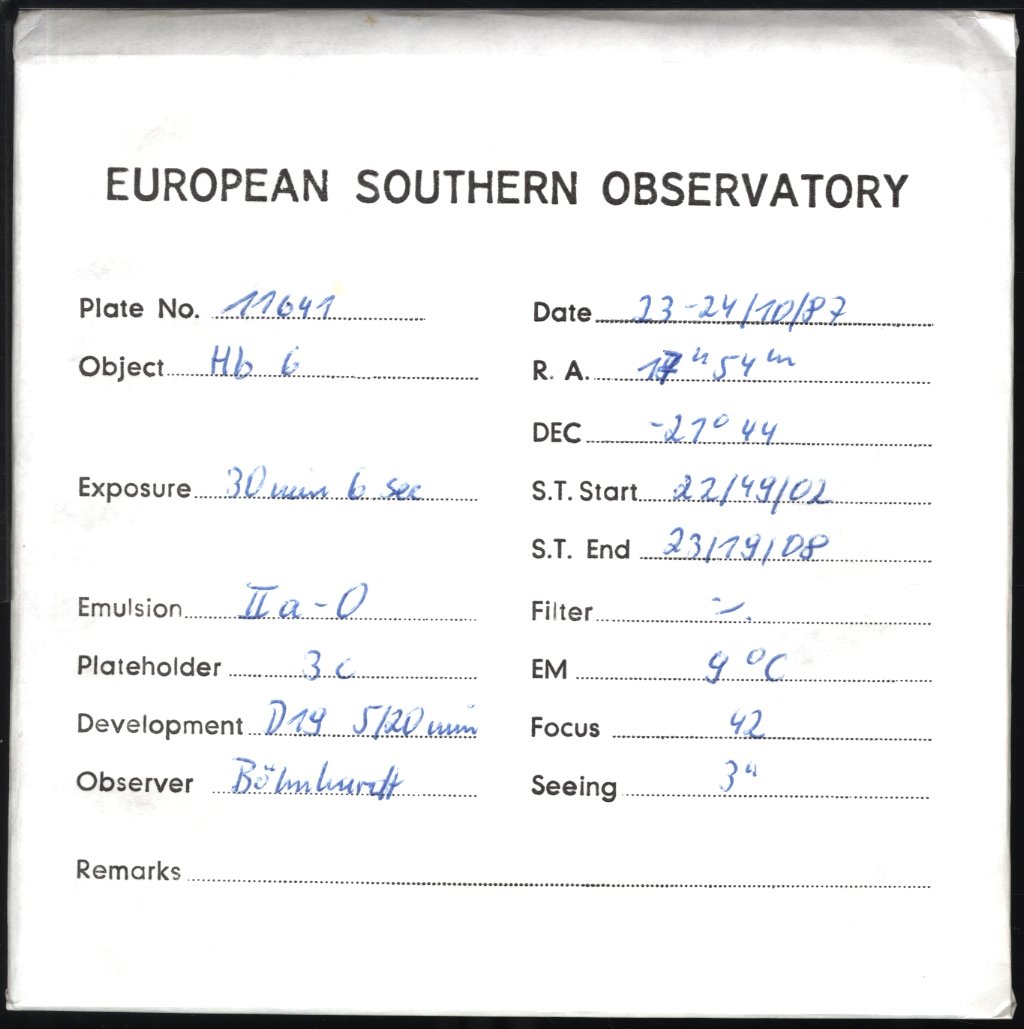 EUROPEAN SOUTHERN OBSERVATORY
Plate No. 11641 Date 23-24/10/87
Object Hb 6 R. A. 17h 54m
DEC -21° 44
Exposure 30 min 6 sec S.T. Start 22/49/02
S.T. End 23/19/08
Emulsion IIa-O Filter -.
Plateholder 3c EM 9 °C
Development D19 5/20 min Focus 42
Observer Böhnhardt Seeing 3"
Remarks